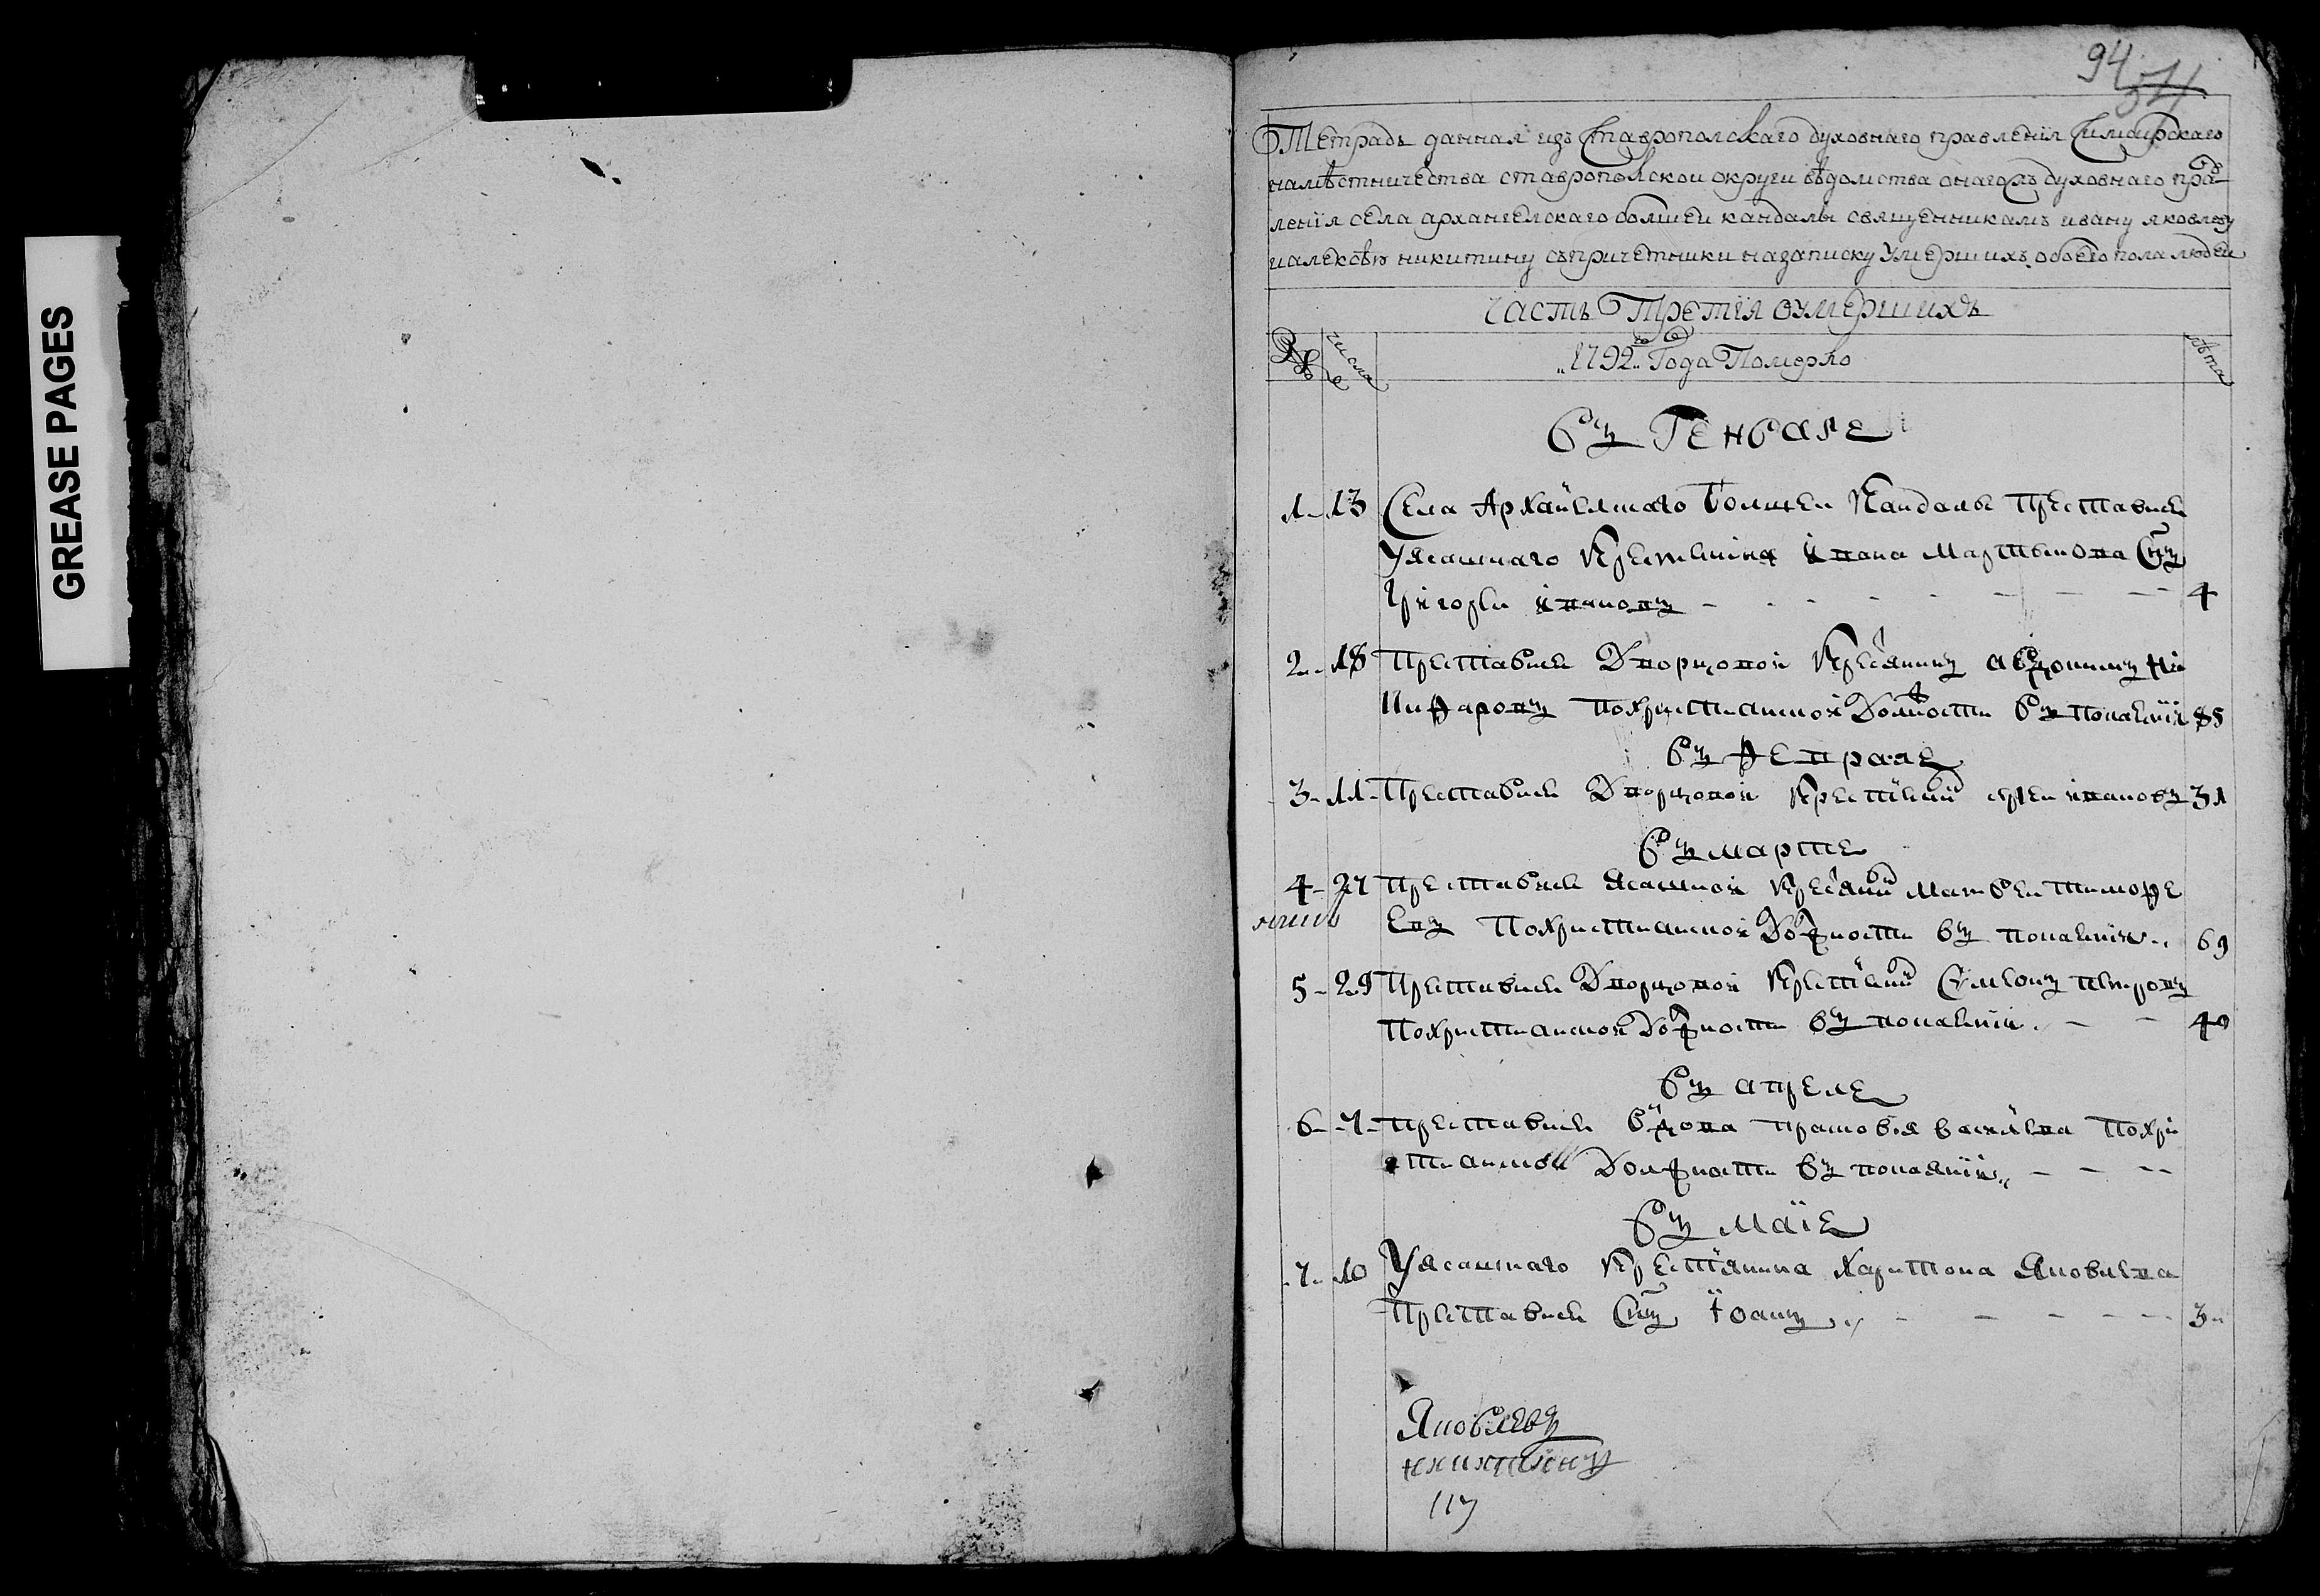 GREASE PAGES
94 54
Тетрадь данная изъ Ставрополскаго духовнаго правленїя Симбирскаго
намѣстничества ставрополской округи вѣдомства онагожъ духовнаго пра
ленїя села архангелскаго болшей кандалы священникамъ ивану яковлеву
и алексѣю никитину съ причетники на записку умершихъ обоего пола людей
часть Третїя о умершихъ
№ числа „1792„ го Года Померло лѣта
Въ Генваре
1 13 Села Архангелскаго Болшей Кандалы преставися
у ясашнаго крестьянина ивана Мартынова снъ
Григорей ивановъ 4
2 18 преставися Дворцовой Крестянинъ
Никифоровъ по христианской должности въ покаянїи 85
Въ Феврале
3 11 Преставися Дворцовой Крестянинъ ивановъ 31
Въ марте
4 27 преставися Ясашной Крестянинъ Матвей тимофе
евъ по христианской должности въ покаянїи 69
5 29 Преставися Дворцовой Крестянинъ Симеонъ петровъ
по христианской должности въ покаянїи 40
Въ апреле
6 7 преставися вдова Прасковья василева по хри
стианской должности въ покаянїи
Въ маїе
7 10 У ясашнаго Крестянина Харитона Яковлева
преставися снъ Іоаннъ 3
Яковлевъ
никитинъ
117